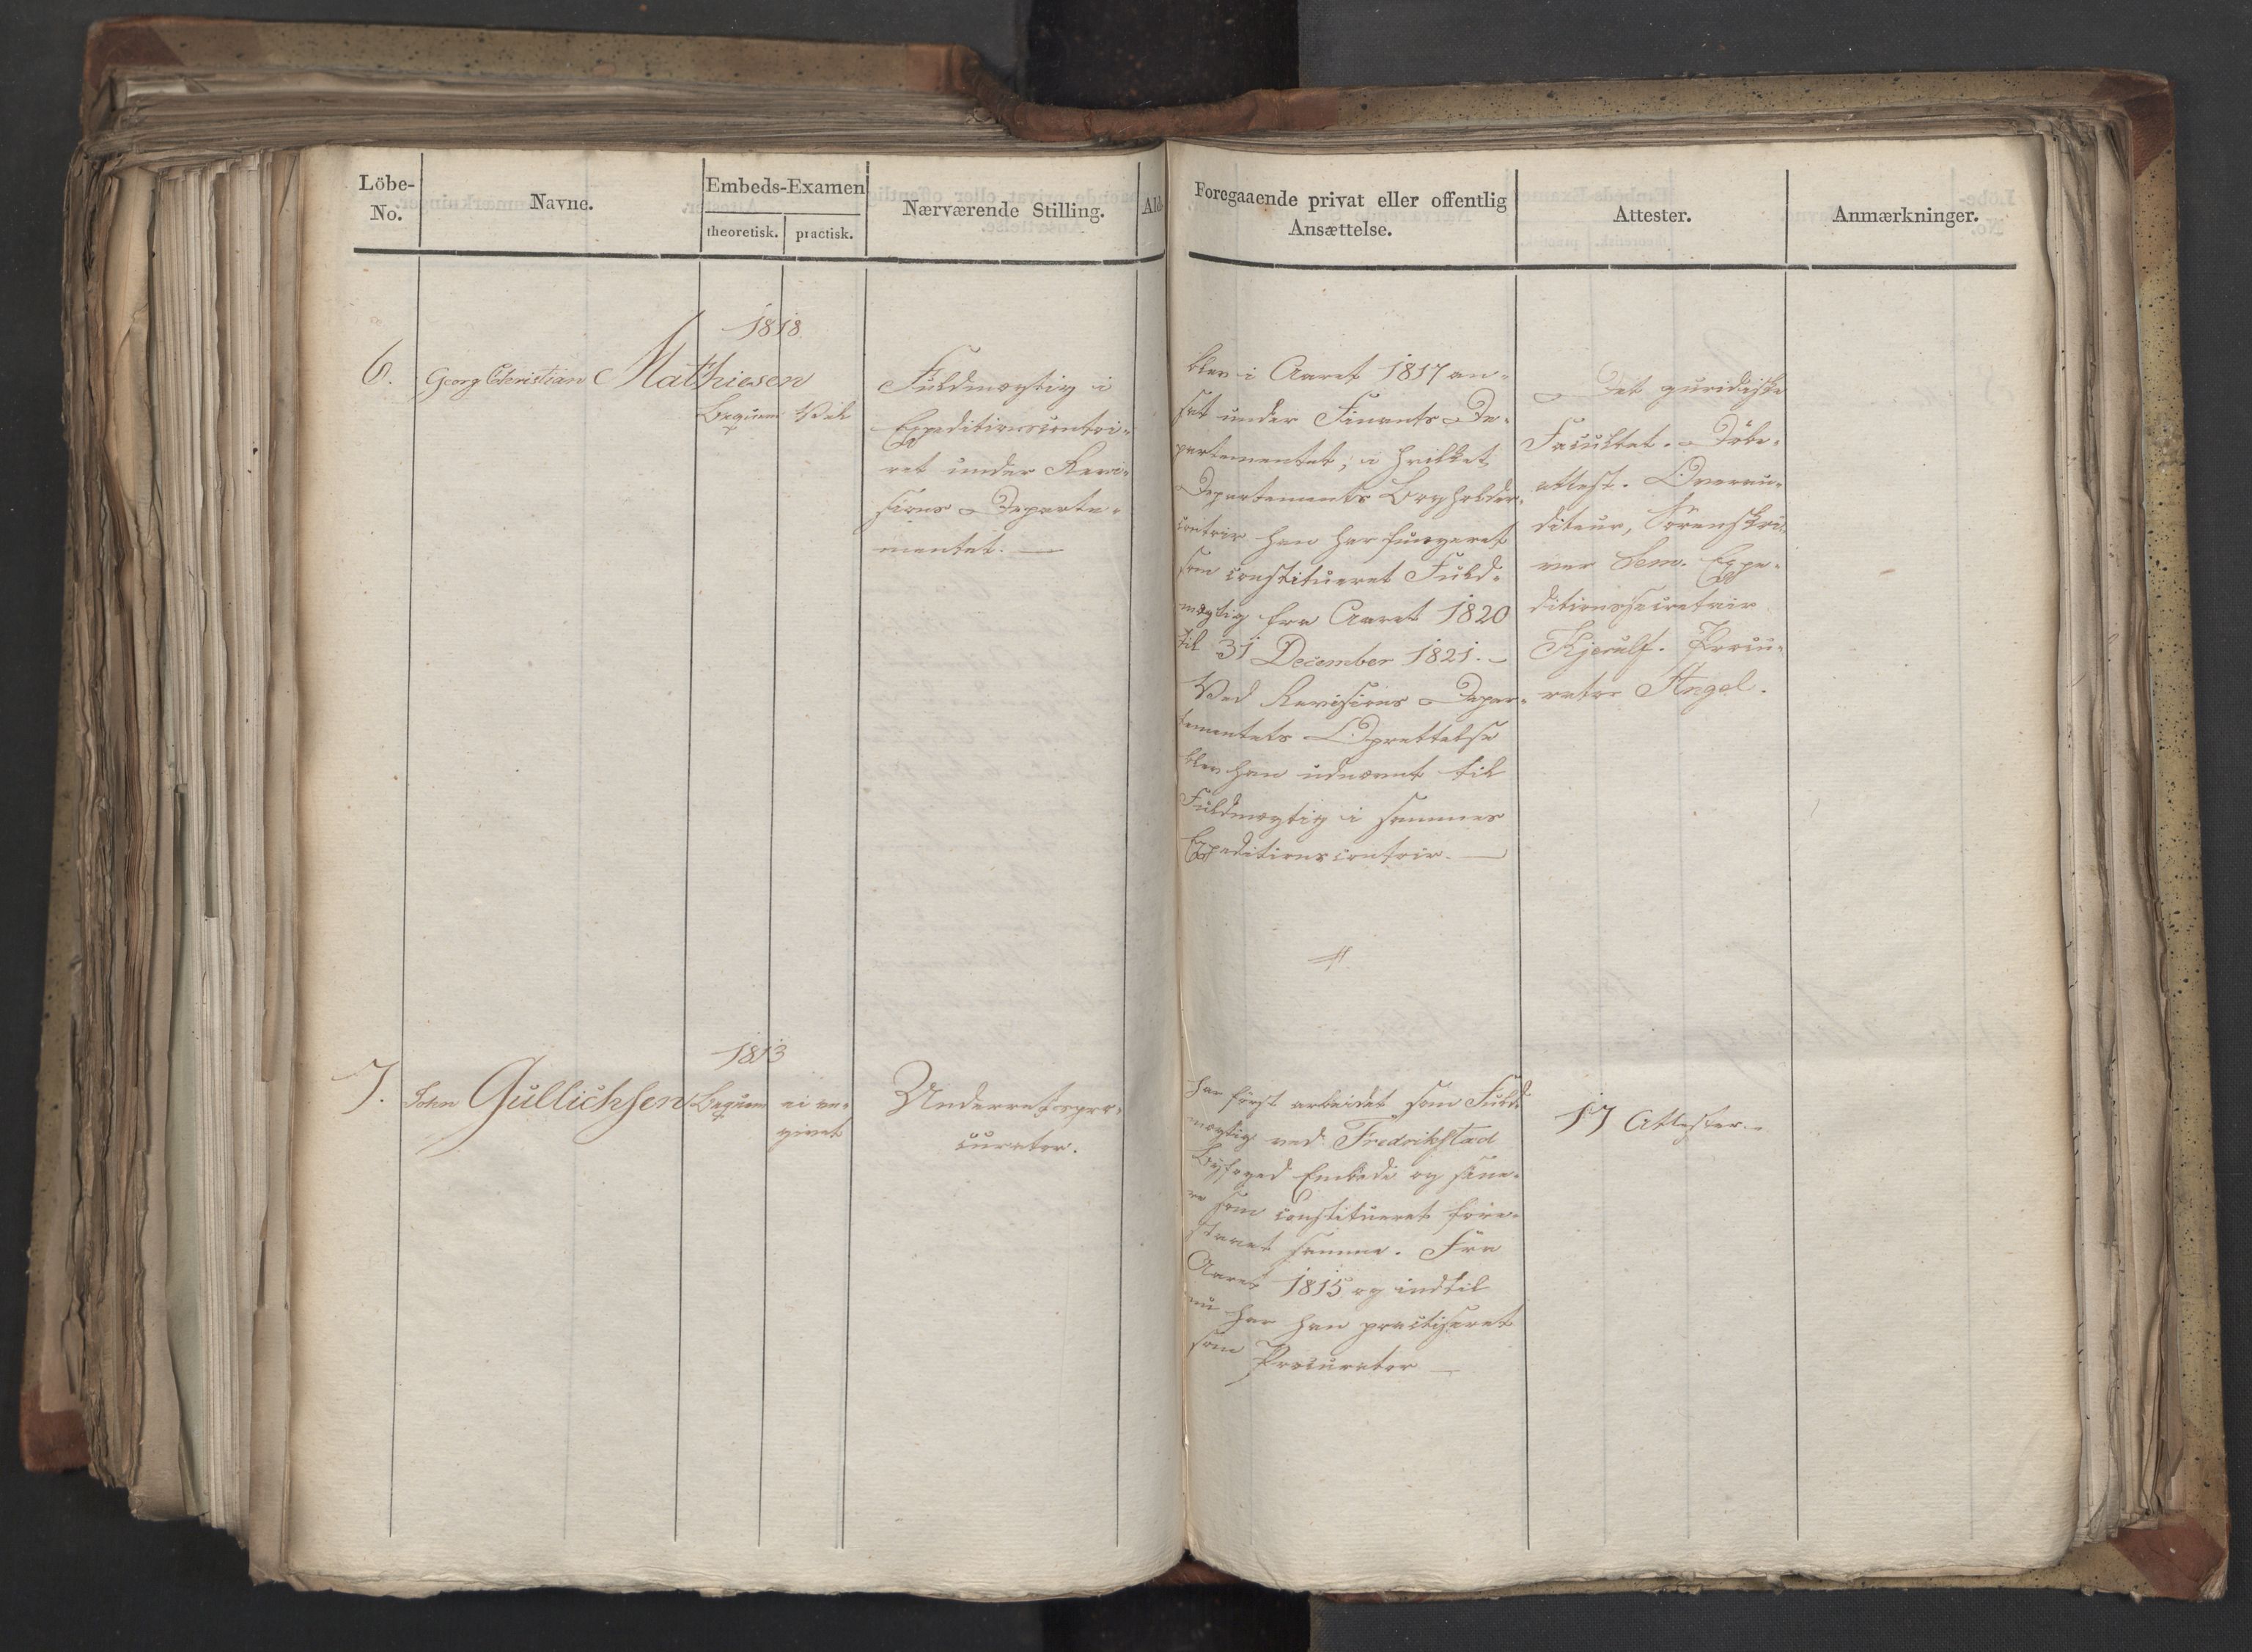 Löbe-
No.
Navne.
Embeds-Examen
theoretisk. practisk.
Nærværende Stilling.
Ald.
Foregaaende privat eller offentlig
Ansættelse.
Attester.
Anmærkninger.
1818
6. Georg Christian Mathiesen
Beqvem Vel
Fuldmægtig i
Expeditionscontoi-
ret under Revi-
sions Departe-
mentet. —
blev i Aaret 1817 an-
sat under Finants De-
partementet, i hvilket
Departements Bogholder-
contoir han har fungeret
som constitueret Fuld-
mægtig fra Aaret 1820
til 31 December 1821. —
Ved Revisions Depar-
tementets Oprettelse
blev han udnævnt til
Fuldmægtig i sammes
Expeditionscontoir. —
Det juridiske
Facultet. Döbe-
attest. Overau-
diteur, Sorenskri-
ver Expe-
ditionssecretair
Kjerulf. Procu-
rator Angel.
1813
7. John Gullichsen Beqvem ei an-
givet
Underretspro-
curator.
har först arbeidet som Fuld-
mægtig ved Fredrikstad
Byfoged Embede og sene-
re som constitueret fore-
staaet samme. Fra
Aaret 1815 og indtil
nu har han practiseret
som Procurator —
17 Attester. —